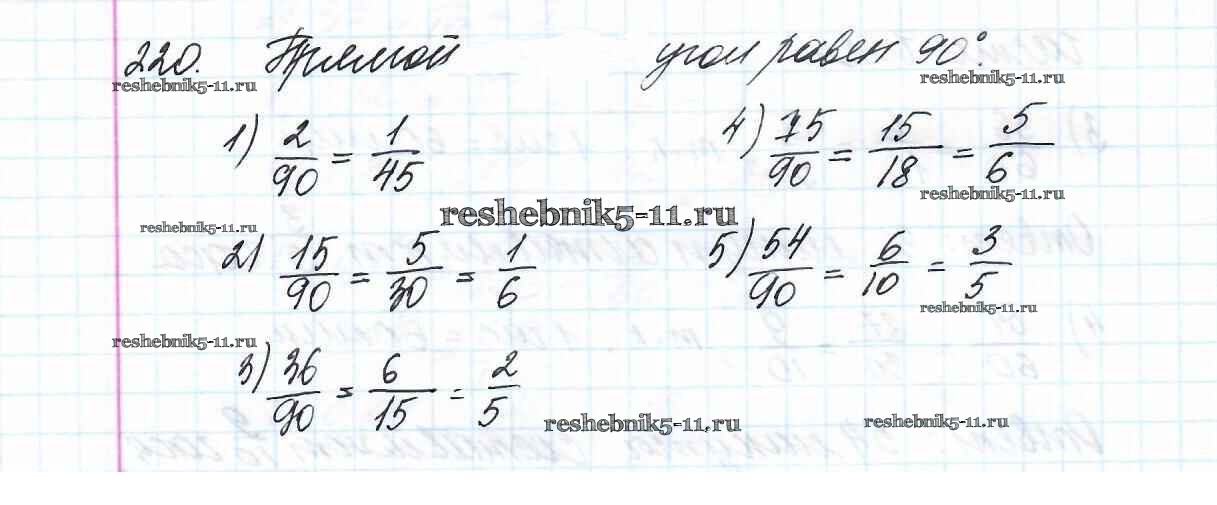 220. Прямой угол равен 90°.
reshebnik5-11.ru reshebnik5-11.ru
1) 2/90 = 1/45 4) 75/90 = 15/18 = 5/6
reshebnik5-11.ru
reshebnik5-11.ru
reshebnik5-11.ru
2) 15/90 = 5/30 = 1/6 5) 54/90 = 6/10 = 3/5
reshebnik5-11.ru
reshebnik5-11.ru
3) 36/90 = 6/15 = 2/5
reshebnik5-11.ru reshebnik5-11.ru